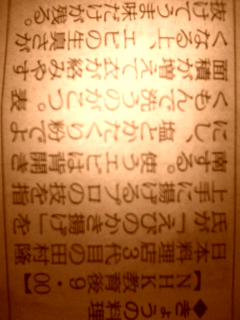 ◆きょうの料理
【NHK教育後9・00】
日本料理店3代目の田村隆
氏が「えびのかき揚げ」を
上手に揚げるプロの技を指
南する。使うエビは背開き
にし、塩とかたくり粉でよ
くもんで洗うのがこつ。表
面積が増えて衣が絡みやす
くなる上、エビの生臭さが
抜けてうま味だけが残る。